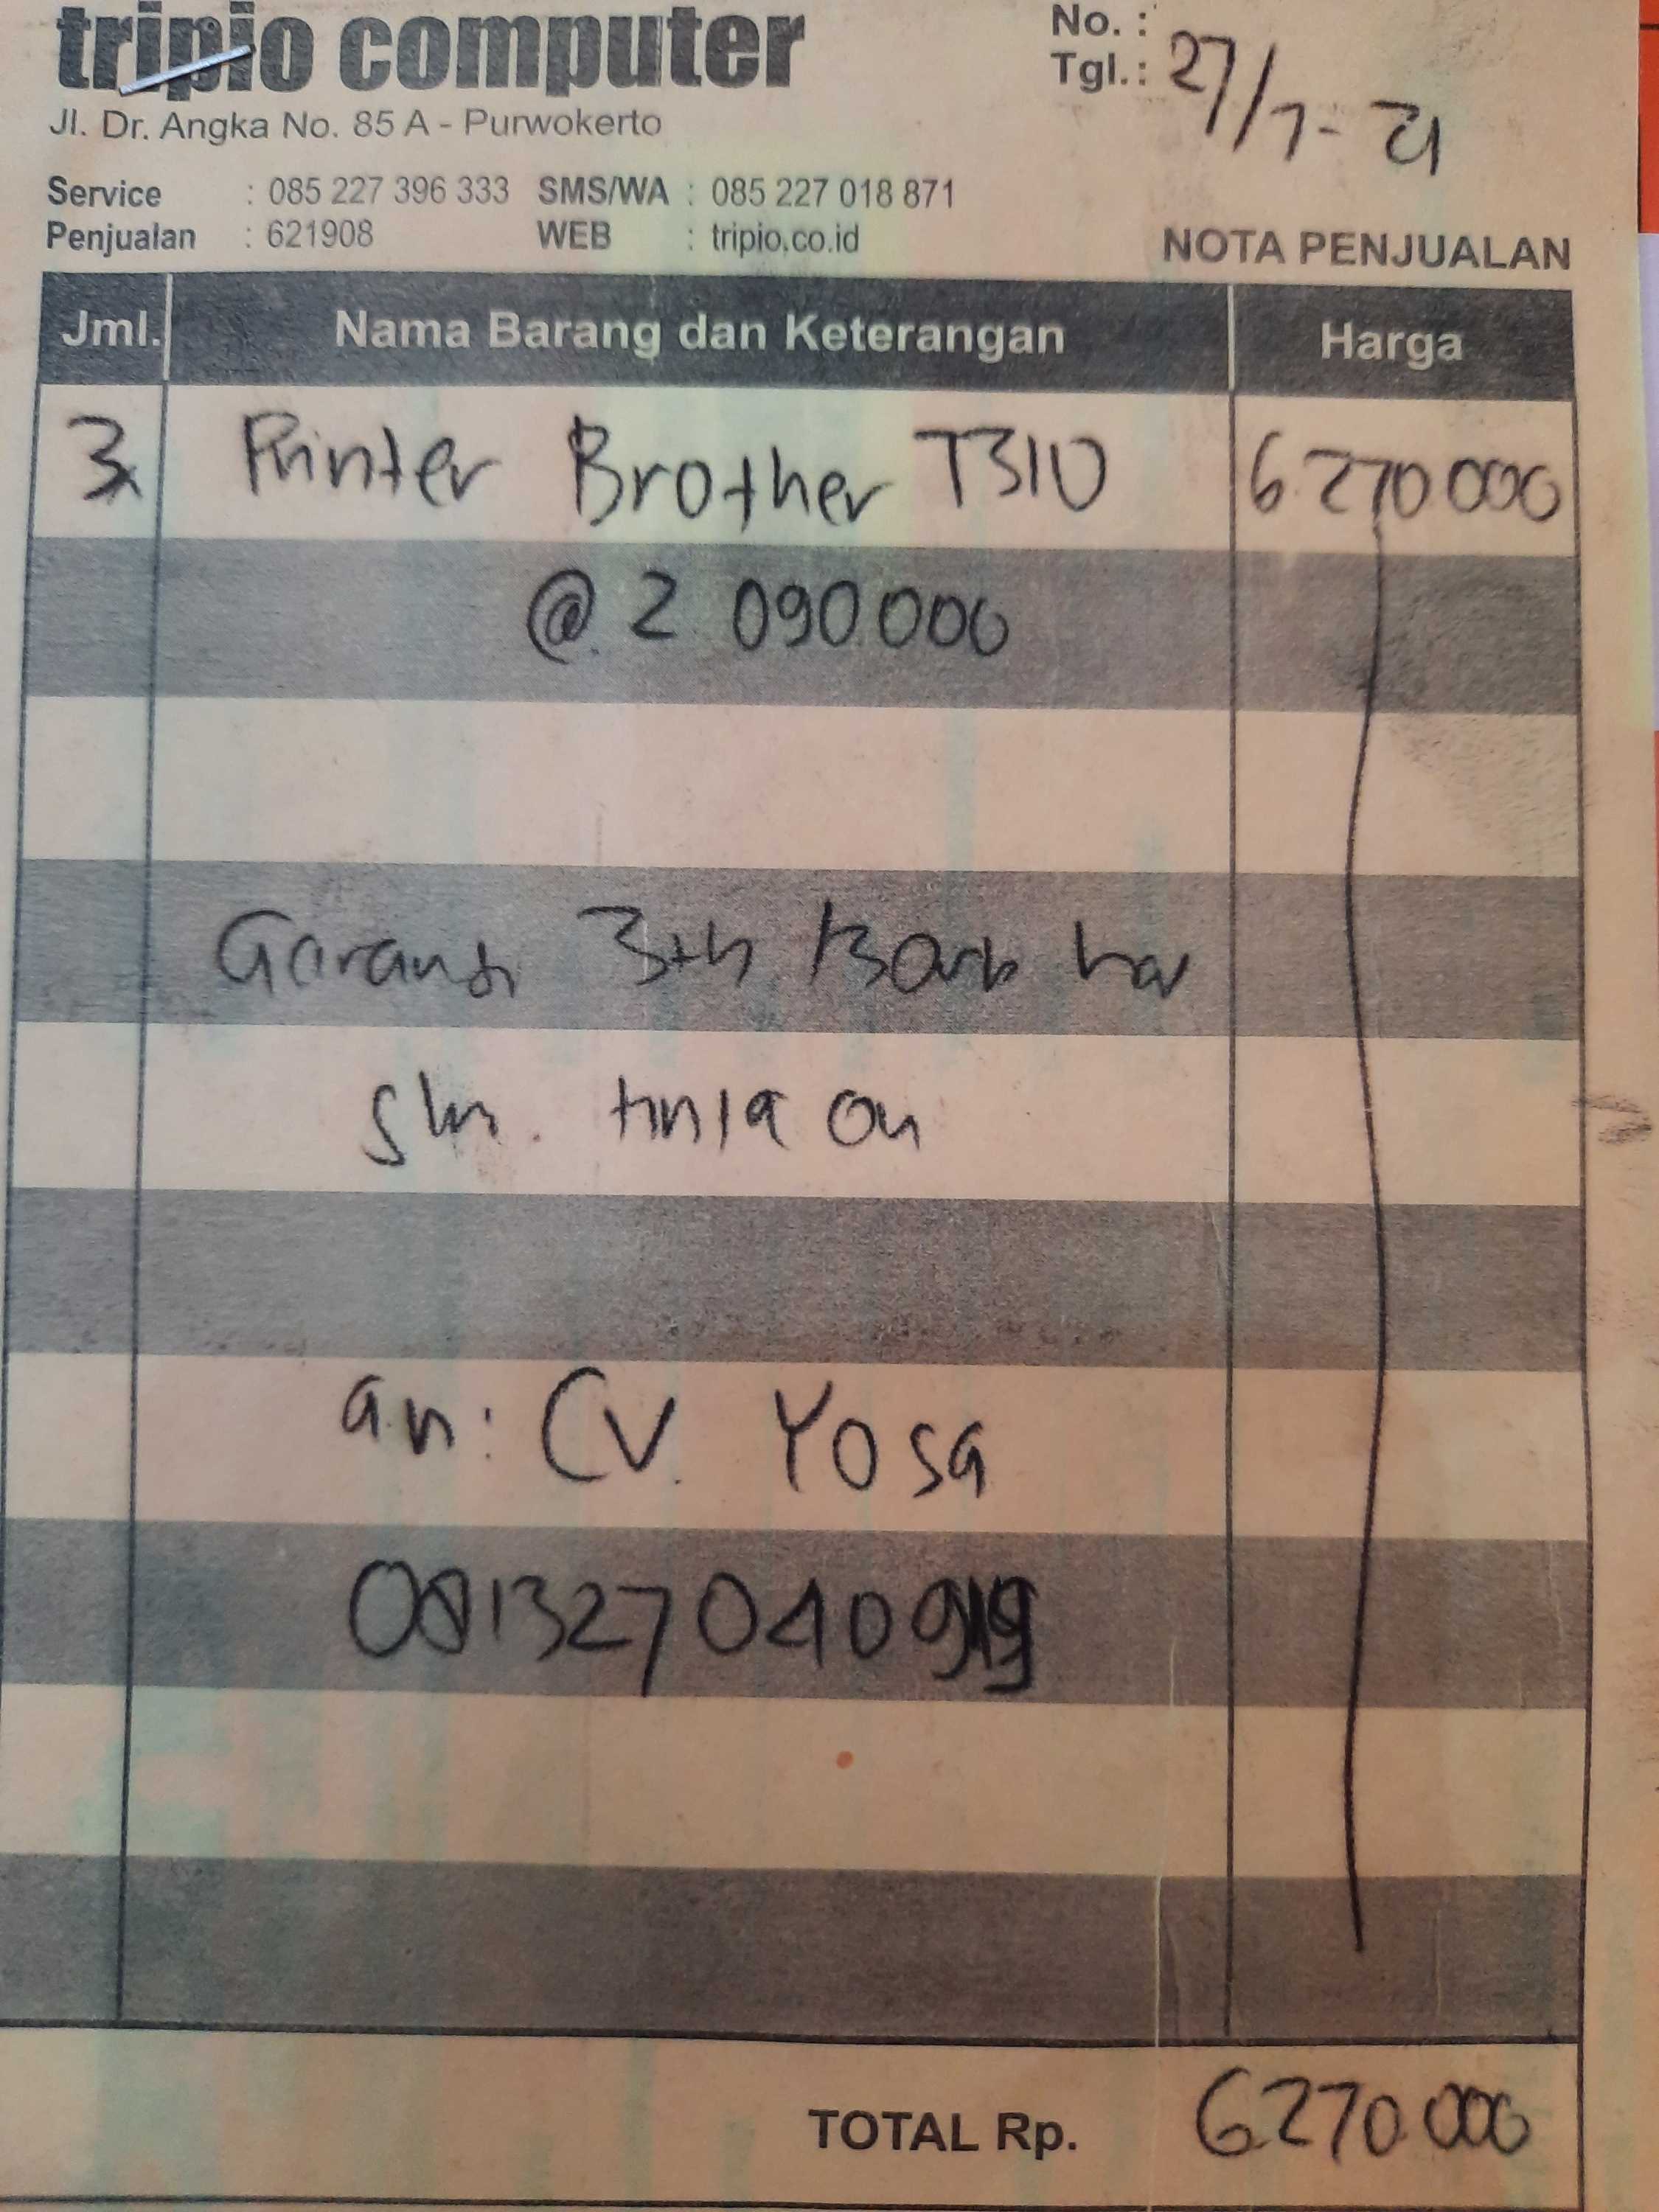 tripio computer
Jl. Dr. Angka No. 85 A - Purwokerto
No. :
Tgl.: 27/7-21
Service : 085 227 396 333 SMS/WA : 085 227 018 871
Penjualan : 621908 WEB : tripio.co.id
NOTA PENJUALAN
Jml. Nama Barang dan Keterangan Harga
3x Printer Brother T310 6.270000
@. 2 090.000
Garansi 3th
an: CV. Yosa
TOTAL Rp. 6.270.000